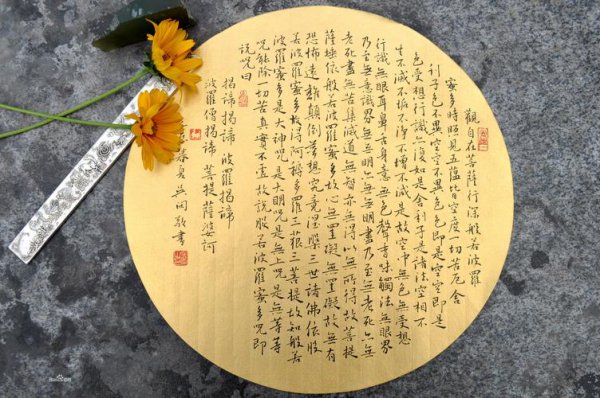 觀自在菩薩行深般若波羅
蜜多時照見五蘊皆空度一切苦厄舍
利子色不異空空不異色色即是空空即是
色受想行識亦復如是舍利子是諸法空相不
生不滅不垢不淨不增不減是故空中無色無受想
行識無眼耳鼻舌身意無色聲香味觸法無眼界
乃至無意識界無無明亦無無明盡乃至無老死亦無
老死盡無苦集滅道無智亦無得以無所得故菩提
薩埵依般若波羅蜜多故心無罣礙無罣礙故無有
恐怖遠離顛倒夢想究竟涅槃三世諸佛依般
若波羅蜜多故得阿耨多羅三藐三菩提故知般若
波羅蜜多是大神咒是大明咒是無上咒是無等等
咒能除一切苦真實不虛故說般若波羅蜜多咒即
說咒曰
揭諦揭諦 波羅揭諦
波羅僧揭諦 菩提薩婆訶
春 敬書